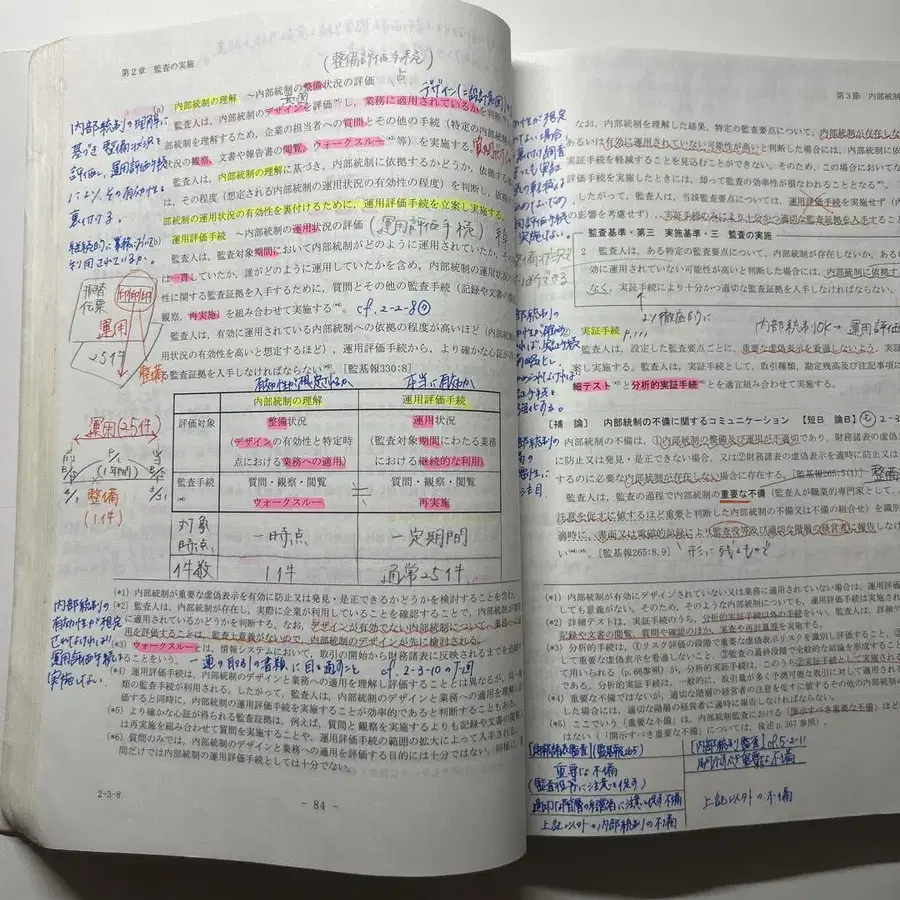 第2章 監査の実施
(整備評価手続)
(a) 内部統制の理解 ～内部統制の整備状況の評価
監査人は、内部統制のデザインを評価し、業務に適用されているかを判断
部統制を理解するため、企業の担当者への質問とその他の手続(特定の内部統
況の観察、文書や報告書の閲覧、ウォークスルー(*3)等)を実施する。
監査人は、内部統制の理解に基づき、内部統制に依拠するかどうか、依拠する
は、その程度(想定される内部統制の運用状況の有効性の程度)を判断し、依拠する
部統制の運用状況の有効性を裏付けるために、運用評価手続を立案し実施する。
(b) 運用評価手続 ～内部統制の運用状況の評価 (運用評価手続)
監査人は、監査対象期間において内部統制がどのように運用されていたか、
は一貫していたか、誰がどのように運用していたかを含め、内部統制の運用状況の
性に関する監査証拠を入手するために、質問とその他の監査手続(記録や文書の
観察、再実施)を組み合わせて実施する。 cf. 2-2-8
監査人は、有効に運用されている内部統制への依拠の程度が高いほど(内部統
用状況の有効性を高いと想定するほど)、運用評価手続から、より確かな心証が
監査証拠を入手しなければならない。[監基報330:8]
内部統制の理解に
基づき整備状況を
評価し、運用評価手続
により、その有効性を
裏付ける。
運用
25件
整備
運用(25件)
(1年間)
整備
(1件)
有効性が想定されるか 本当に有効か
内部統制の理解 運用評価手続
評価対象 整備状況 運用状況
(デザインの有効性と特定時 (監査対象期間にわたる業務
点における業務への適用) における継続的な利用)
監査手続 質問・観察・閲覧 質問・観察・閲覧
ウォークスルー 再実施
対象時点 一時点 一定期間
件数 1件 通常25件
(*1) 内部統制が重要な虚偽表示を有効に防止又は発見・是正できるかどうかを検討することを含む。
(*2) 監査人は、内部統制が存在し、実際に企業が利用していることを確認することで、内部統制が業
に適用されているかどうかを判断する。なお、デザインが有効でない内部統制について、業務への
用を評価することは、監査上意義がないので、内部統制のデザインが先に検討される。
(*3) ウォークスルーとは、情報システムにおいて、取引の開始から財務諸表に反映されるまでを追跡す
ることをいう。 一連の取引の書類に目を通すこと cf. 2-3-10
(*4) 運用評価手続は、内部統制のデザインと業務への適用を理解し評価することとは異なるが、同一
類の監査手続が利用される。したがって、監査人は、内部統制のデザインと業務への適用を理解し
すると同時に、内部統制の運用評価手続を実施することが効率的であると判断することもある。
(*5) より確かな心証が得られる監査証拠は、例えば、質問と観察を実施するよりも記録や文書の閲覧
は再実施を組み合わせて質問を実施することや、運用評価手続の範囲の拡大によって入手される。
(*6) 質問のみでは、内部統制のデザインと業務への適用を評価する目的には十分ではない。同様に、
間だけでは内部統制の運用評価手続としては十分ではない。
内部統制の
有効性が想定
されなければ
運用評価手続は
実施しない。
2-3-8
- 84 -
第3節 内部統制
なお、内部統制を理解した結果、特定の監査要点について、内部統制が存在しな
あるいは有効に運用されていない可能性が高いと判断した場合には、内部統制に依
実証手続を軽減することを見込むことができない。そのため、この場合において
続を実施したときには、却って監査の効率性が損なわれることとなる
したがって、監査人は、当該監査要点については、運用評価手続を実施せず(内
の影響を考慮せず)、実証手続のみにより十分かつ適切な監査証拠を入手すること
監査基準・第三 実施基準・三 監査の実施
2 監査人は、ある特定の監査要点について、内部統制が存在しないか、ある
効に運用されていない可能性が高いと判断した場合には、内部統制に依拠
なく、実証手続により十分かつ適切な監査証拠を入手しなければならない。
より徹底的に
実証手続
監査人は、設定した監査要点ごとに、重要な虚偽表示を看過しないよう、実証
案し実施する。監査人は、実証手続として、取引種類、勘定残高及び注記事項に
細テストと分析的実証手続とを適宜組み合わせて実施する。
[補 論] 内部統制の不備に関するコミュニケーション [短B 論B]
内部統制の不備は、①内部統制の整備及び運用が不適切であり、財務諸表の虚偽
に防止又は発見・是正できない場合、又は②財務諸表の虚偽表示を適時に防止又は
するのに必要な内部統制が存在しない場合に存在する。[監基報265:5(1)]
監査人は、監査の過程で内部統制の重要な不備(監査人が職業的専門家として、
注意を促すに値するほど重要と判断した内部統制の不備又は不備の組合せ)を識別
適時に、書面又は電磁的記録により監査役等及び適切な階層の経営者に報告しなけ
[監基報265:8,9] 形に残るもので
(*1) 内部統制が有効にデザインされていない又は業務に適用されていない場合は、運用評価
しても意義がない。そのため、そのような内部統制については、運用評価手続は実施され
(*2) 詳細テストは、実証手続のうち、分析的実証手続以外の手続をいい、監査人は、詳細テ
記録や文書の閲覧、質問や確認のほか、実査や再計算等を実施する。
(*3) 分析的手続は、①リスク評価の段階で重要な虚偽表示リスクを識別し評価すること、②
して重要な虚偽表示を看過しないこと、③監査の最終段階で全般的な結論を形成する
て用いられる(p.66参照)が、分析的実証手続は、このうち②実証手続として実施される
である。分析的実証手続は、一般的に、取引量が多く予測可能な取引に対して適用され
(*4) 重要な不備ではないが、適切な階層の経営者の注意を促すに値するその他の内部統制の
した場合には、適切な階層の経営者に適時に報告しなければならない。
(*5) ここでいう「重要な不備」は、内部統制監査における「開示すべき重要な不備」ほど
はない(「開示すべき重要な不備」については、後述p.367参照)。
[財務諸表監査](監基報265) [内部統制監査] cf.5-2-11
重要な不備 開示すべき重要な不備
(監査役等に注意を促す)
適切な階層の経営者に注意を促す不備 上記以外の不備
上記以外の内部統制の不備